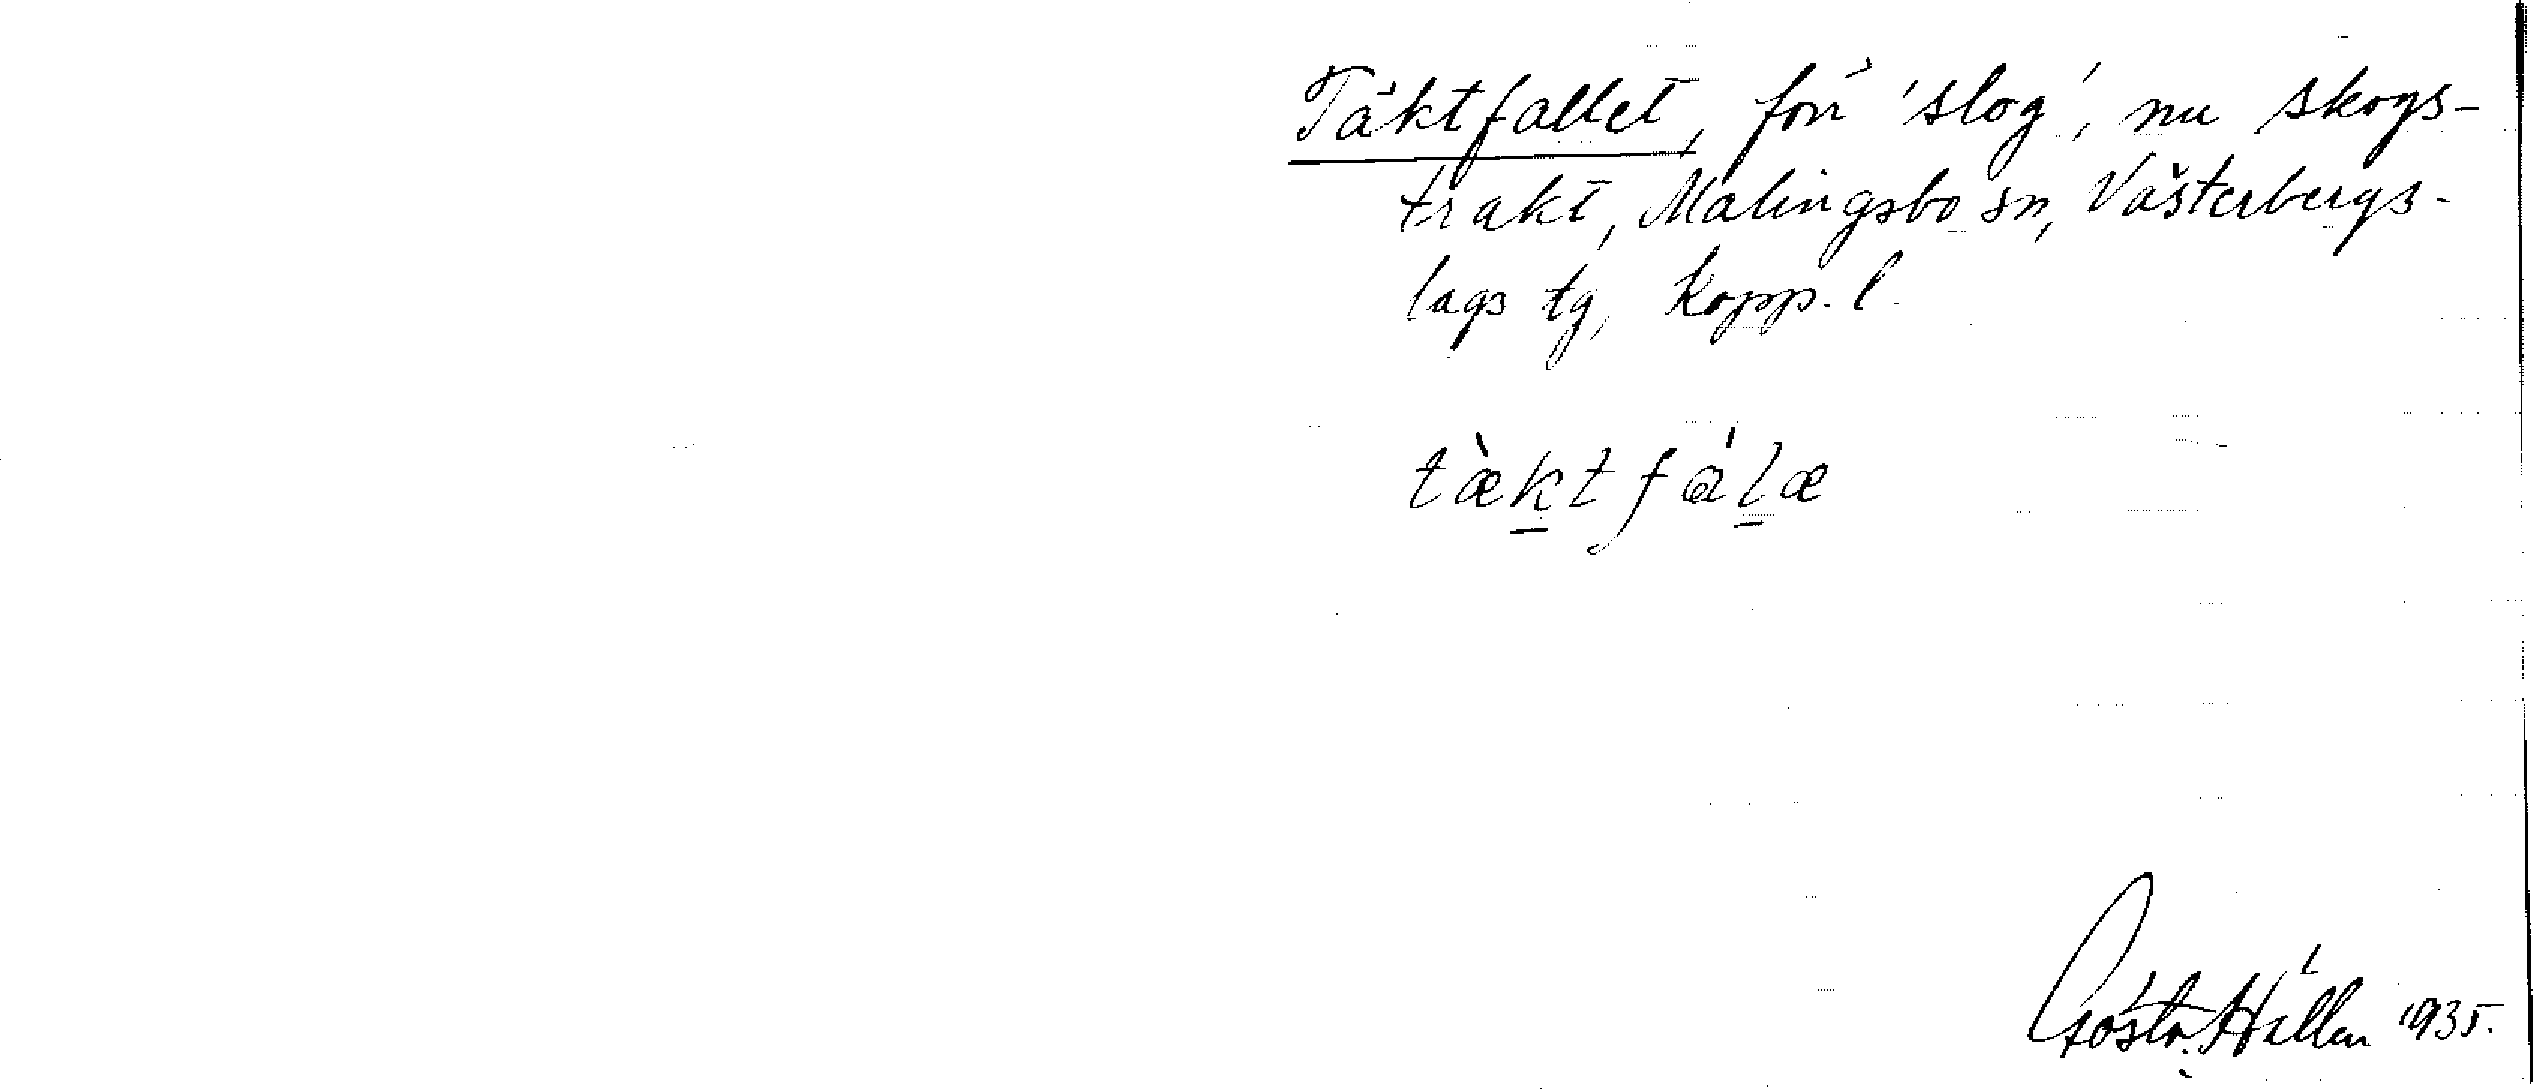 Täktfallet, förr 'slog', nu skogs-
trakt, Malingsbo sn, Västerbergs-
lags tg, Kopp. l.
tæ̀ḵtfáḻæ
Gösta Hallén 1935.